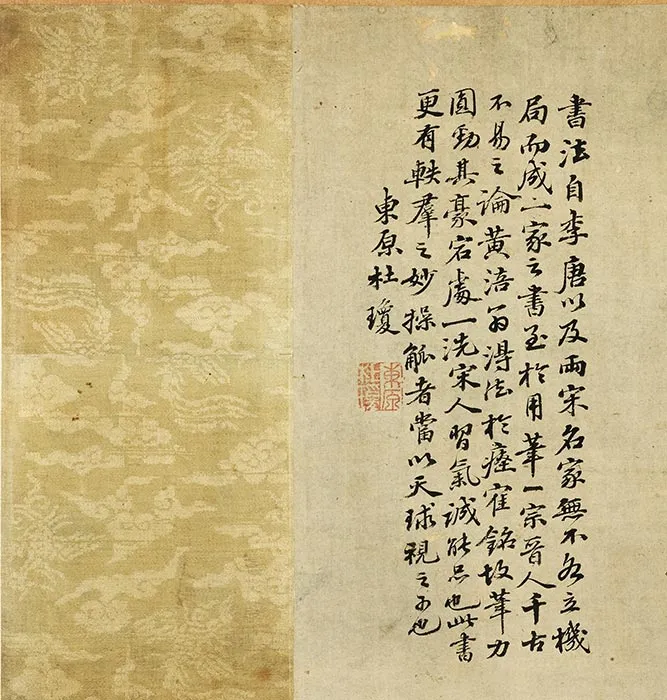 書法自李唐以及兩宋名家無不各立機
局而成一家之書至於用筆一宗晉人千古
不易之論黃涪翁淂法於瘞隺銘故筆力
圓勁其豪宕處一洗宋人習氣誠能品也此書
更有軼羣之妙操觚者當以天球視之可也
東原杜瓊
東原